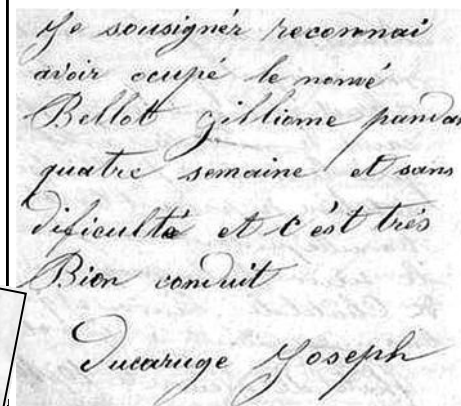 Je sousignér reconnai
avoir ocupé le nomé
Bellot gilliome pandan
quatre semaine et sans
dificulté et c'est trés
Bien conduit
Ducaruge Joseph